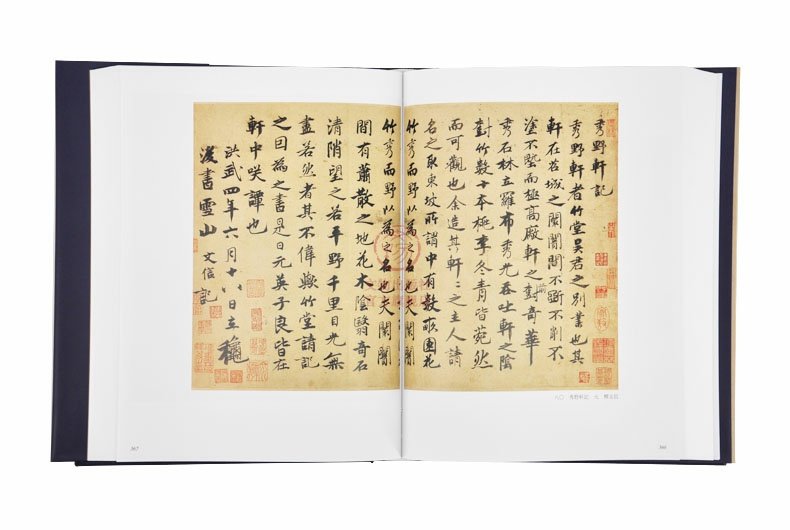 秀野軒記
秀野軒者竹堂吳君之別業也其
軒在苕城之闤闠間不斵不削不
塗不塈而極高厰軒之對奇華
秀石林立羅布秀光吞吐軒之陰
對竹數十本極李冬青皆菀然
而可觀也余造其軒〻之主人請
名之取東坡所謂中有數畝園花
竹秀而野以為之名也夫闤闠
八〇 秀野軒記 元 釋文信
366
竹秀而野以為之名也夫闤闠
間有蕭散之地花木陰翳奇石
清陗望之若平野千里目光無
盡若然者其不偉歟竹堂請記
之因為之書是日元英子良皆在
軒中咲譚也
洪武四年六月十八日立穐
後書雪山文信記
367